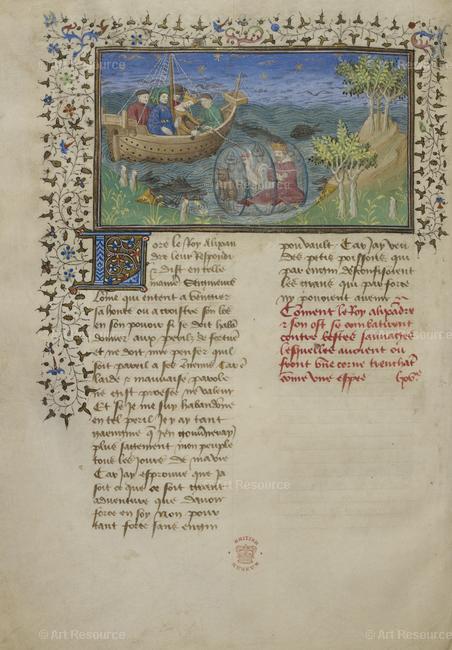 Lore le Roy alixan
dre leur respondi
& dist en telle
maniere Seigneurs
lome qui entent a vengier
sa honte ou a croistre son los
en son pouoir si se doit habā
donner aux perilz de fortune
et ne doit mie penser quil
soit pareil a ses ennemis Car
laide & mauuaise parole
ne est proesse ne valeur
Et se Je me suy habandone
en tel peril Je y ay tant
gaengnie q Jen gouuneray
plus sagement mon peuple
tous les Jours de ma vie
Car Jay esprouue que Ja
soit ce que ce soit grant
aduenture que dauoir
force en soy Non pour
tant force sans engin
pou vault Car Jay veu
des petis poissons qui
par engin desconfisoient
les grans qui par force
ny pouoient auenir
Coment le Roy alixādre
& son ost se combatirent
contre bestes sauuages
lesquelles auoient ou
front vne corne trenchāt
come vne espee
BRITISH
MUSEUM
© Art Resource
© Art Resource
© Art Resource
© Art Resource
© Art Resource